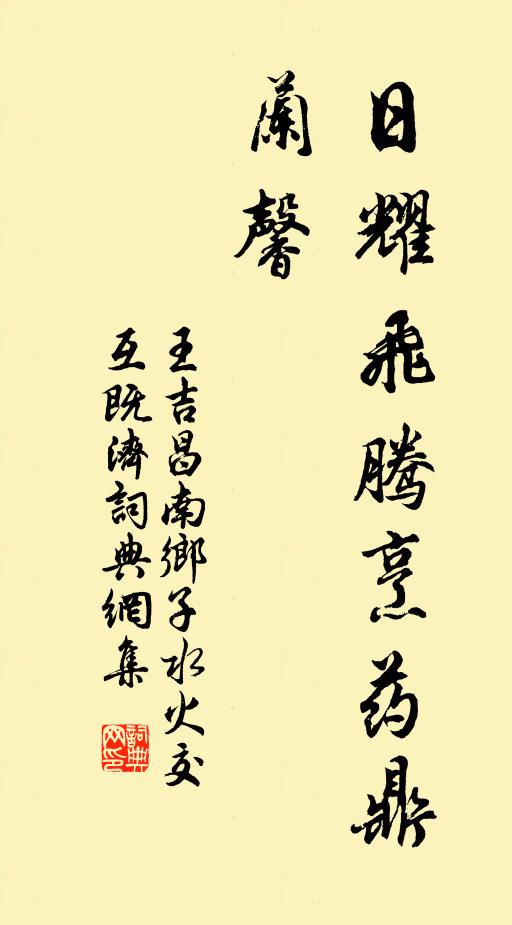 日耀飛騰烹药鼎
蘭馨
王吉昌南鄉子水火交
互既濟詞典網集
詞典
网印